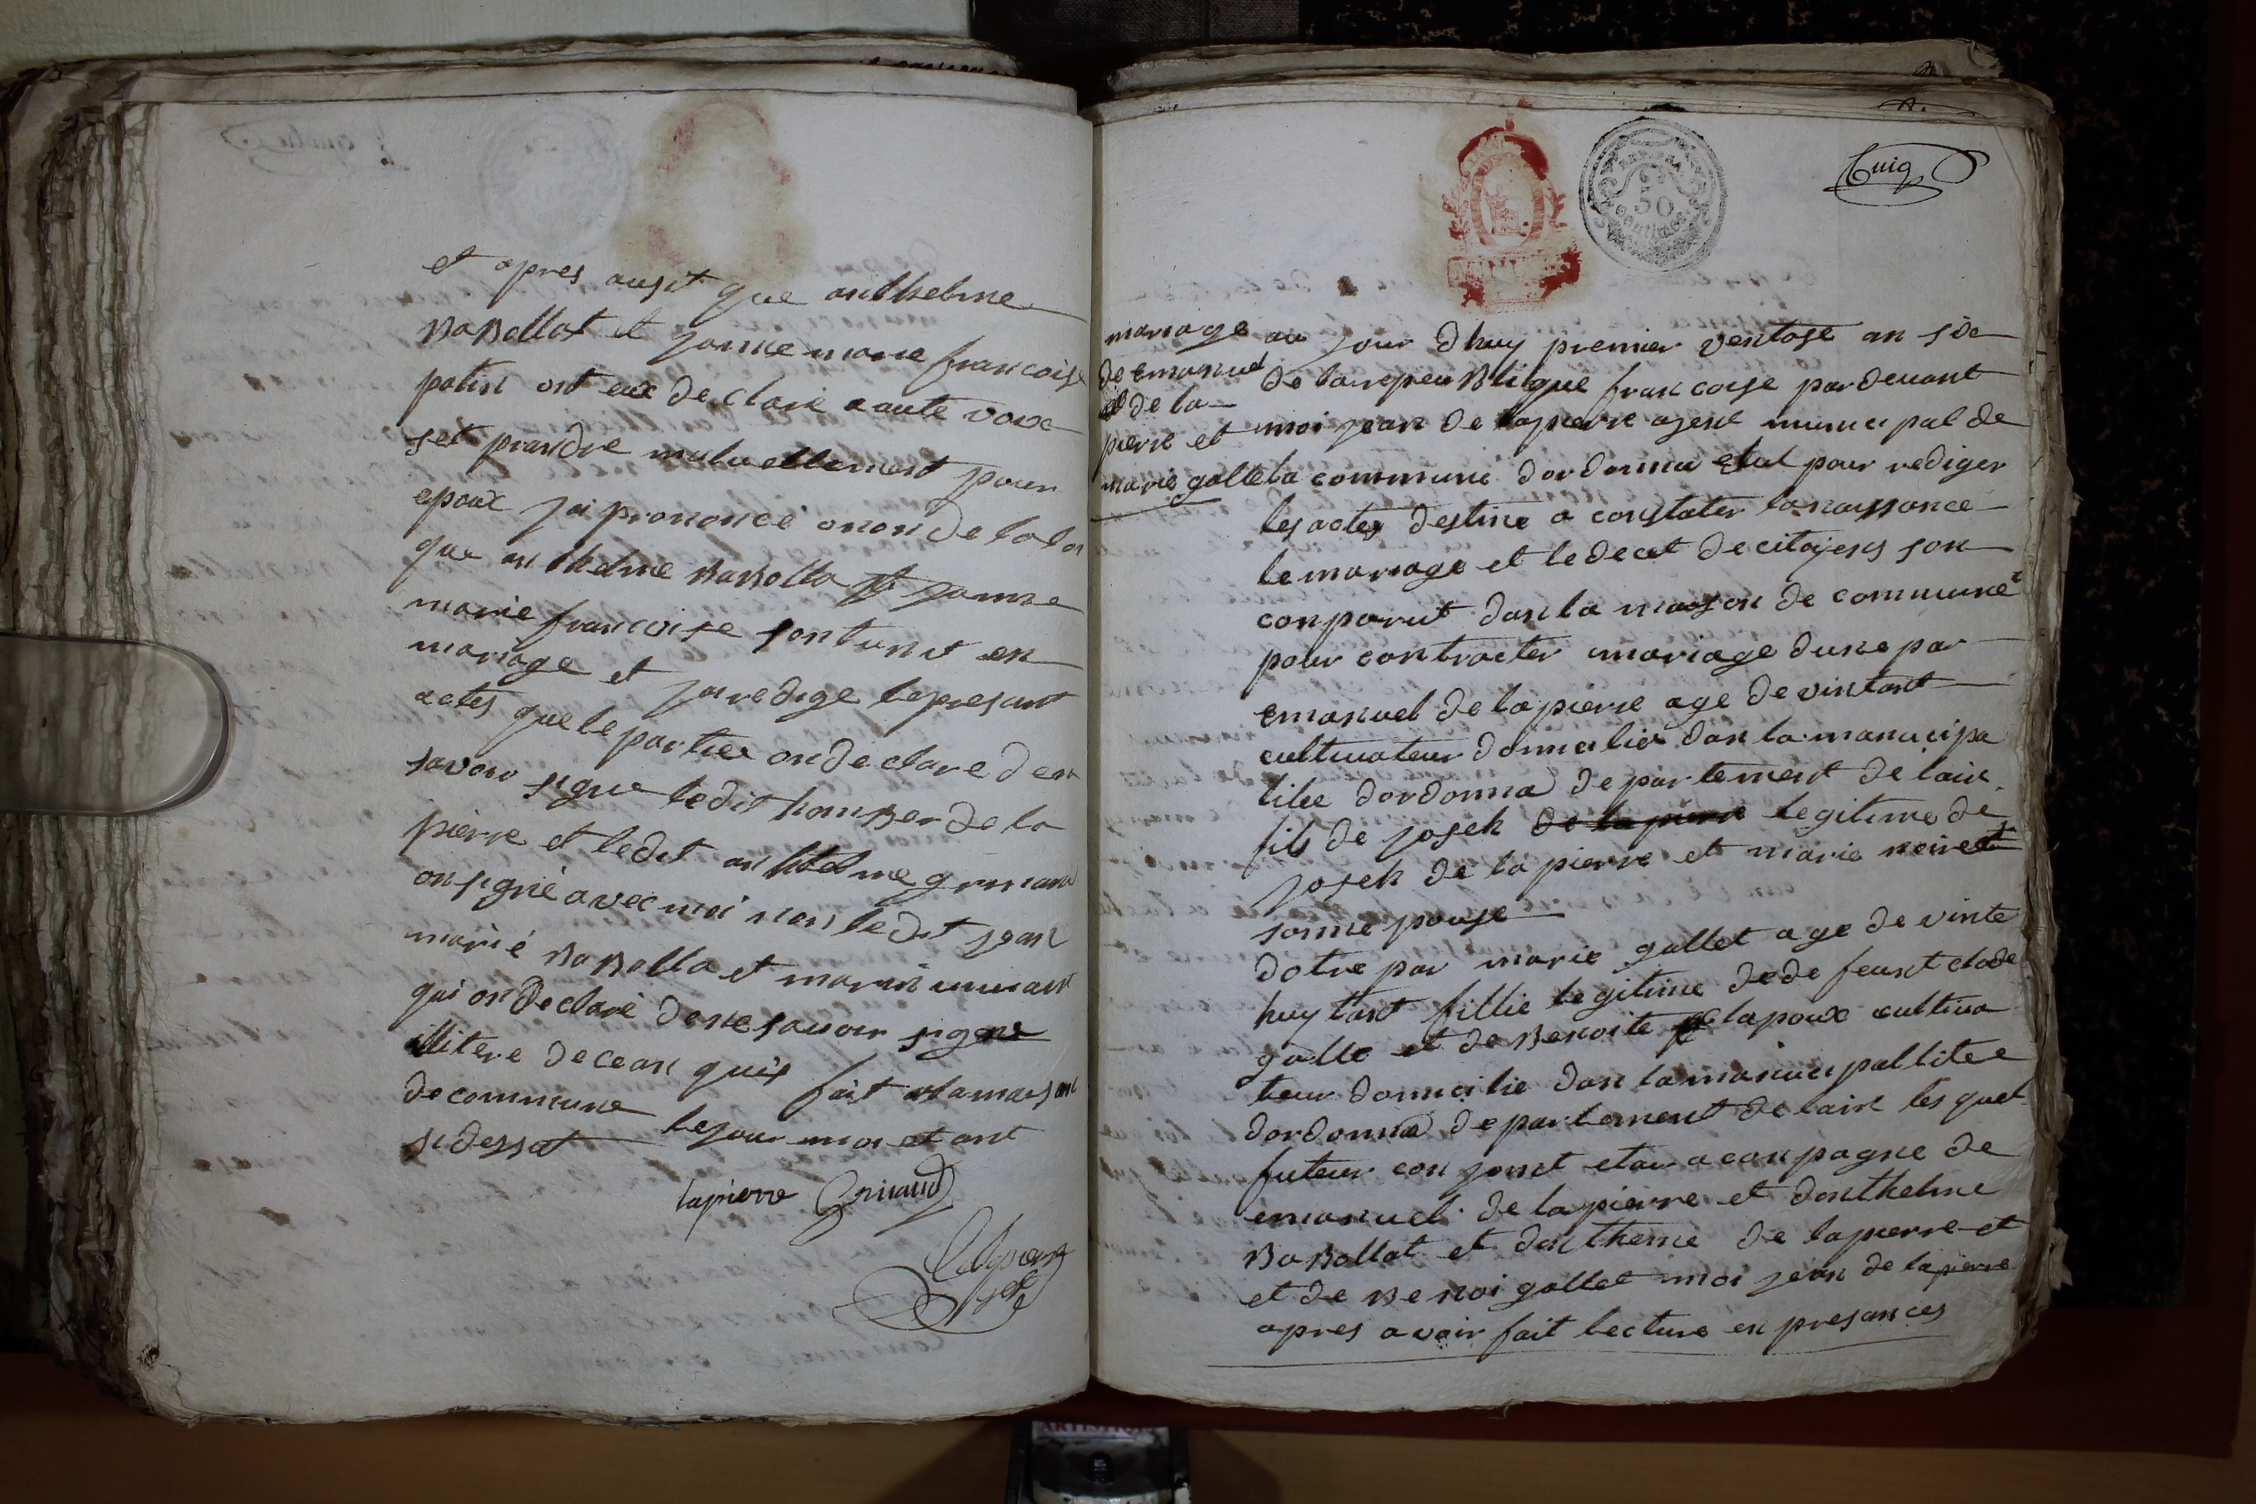 et apres ausit que anthelme
Babollat et janne marie francoise
patin ont eux declaré a aute voux
set prandre mutuellement pour
epoux jai prononcé onon de la loi
que anthelme Babolla et janne
marie francoise sont unit en
mariage et jai redige le presant
actes que le parties on declare den
savoir signe ledit homber de la
pierre et ledit anthelme grinand
on signé avec moi non ledit jean
marié Babolla et
qui on declaré de ne savoir signe
illitere de ce an quix fait ala maison
de commune le jour moi et ant
si dessat
lapierre Grinaud
mariage
de emanuel
de la
pierre et
marie galle
50
centimes
au jour dhuy premier ventose an six
de la repeublique francoise par devant
moi jean de lapierre agent municipal de
la commune dordonna elut pour rediger
les actes destine a constater la naissance
le mariage et le decet de citojens son
conparut dan la maison de commune
pour contracter mariage dune par
emanuel de la pierre age de vintant
cultivateur domicilié dan la manucipa
litee dordonna departement de lain
fils de joseh de la pierre legitime de
joseh de la pierre et marie
sonne pouse
dotre par marie gallet age de vinte
huy tant fillie legitime de de feunt clode
galle et de Benoite lapoux cultiva
teur domicilie dan la manucipallitee
dordonna departement de lain les quel
futeur con jonct etan aconpagne de
emanuel de la pierre et danthelme
Babollat et dantheme de lapierre et
et de Benoi gallet moi jean de la pierre
apres avoir fait lecture en presances